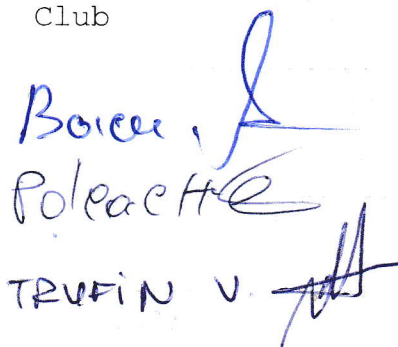 Club
Boicu.
Poleac H
TRUFiN V.